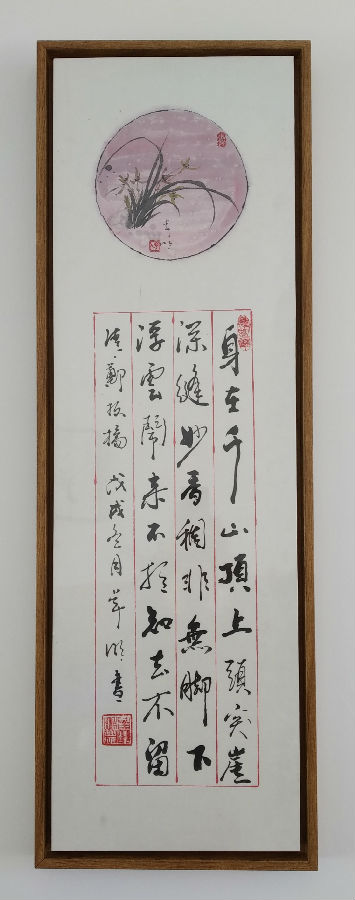 身在千山頂上頭突崖
深縫妙香稠非無脚下
浮雲鬧來不相知去不留
清鄭板橋 戊戌冬月 書